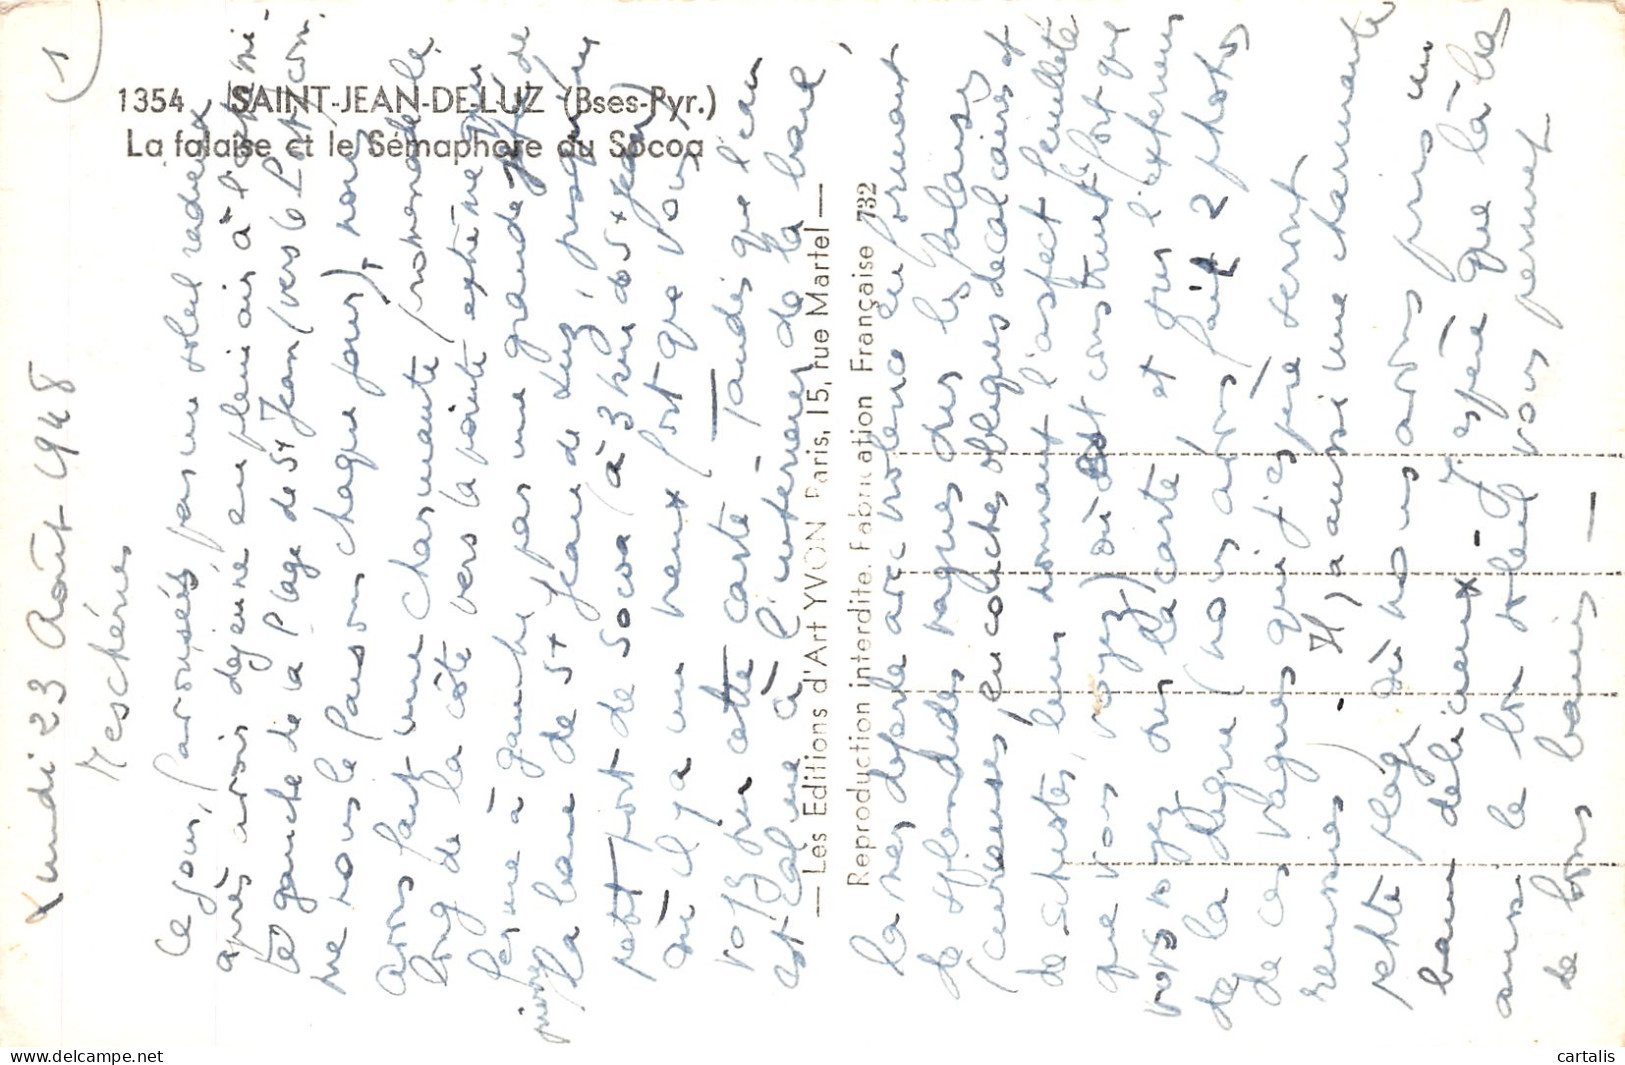 1
1354 SAINT-JEAN-DE-LUZ (Bses-Pyr.)
La falaise et le Sémaphore du Socoa
— Les Editions d'Art YVON Paris, 15, rue Martel —
Reproduction interdite. Fabrication Française 732
Lundi 23 Août 1948
Mes chéries
Ce jour, favorisés par un soleil radieux
après avoir déjeuné en plein air à
gauche de la Plage de St Jean (vers le
me nous le faisons chaque jour), nous
avons fait une charmante promenade le
long de la côte vers la pointe extrême qui
ferme à gauche par une grande jetée de
pierre
la baie de St Jean de Luz, jusqu'au
petit port de Socoa (à 3 km de St Jean)
où il y a un vieux fort que vous
voyez sur cette carte - Tandis que l'eau
est calme à l'intérieur de la baie
la mer déferle avec violence en formant
de splendides vagues sur les falaises
(curieuses, en couches obliques de calcaires et
de schistes, leur donnant l'aspect feuilleté
que vous voyez) où est construit le fort que
vous voyez sur la carte et sur l'extérieur
de la digue (nous avons fait 2 photos
de ces vagues qui j'espère seront
réussies - Il y a aussi une charmante
petite plage où nous avons pris un
bain délicieux - J'espère que là-bas
aussi le soleil vous permet
de bons bains —
cartalis